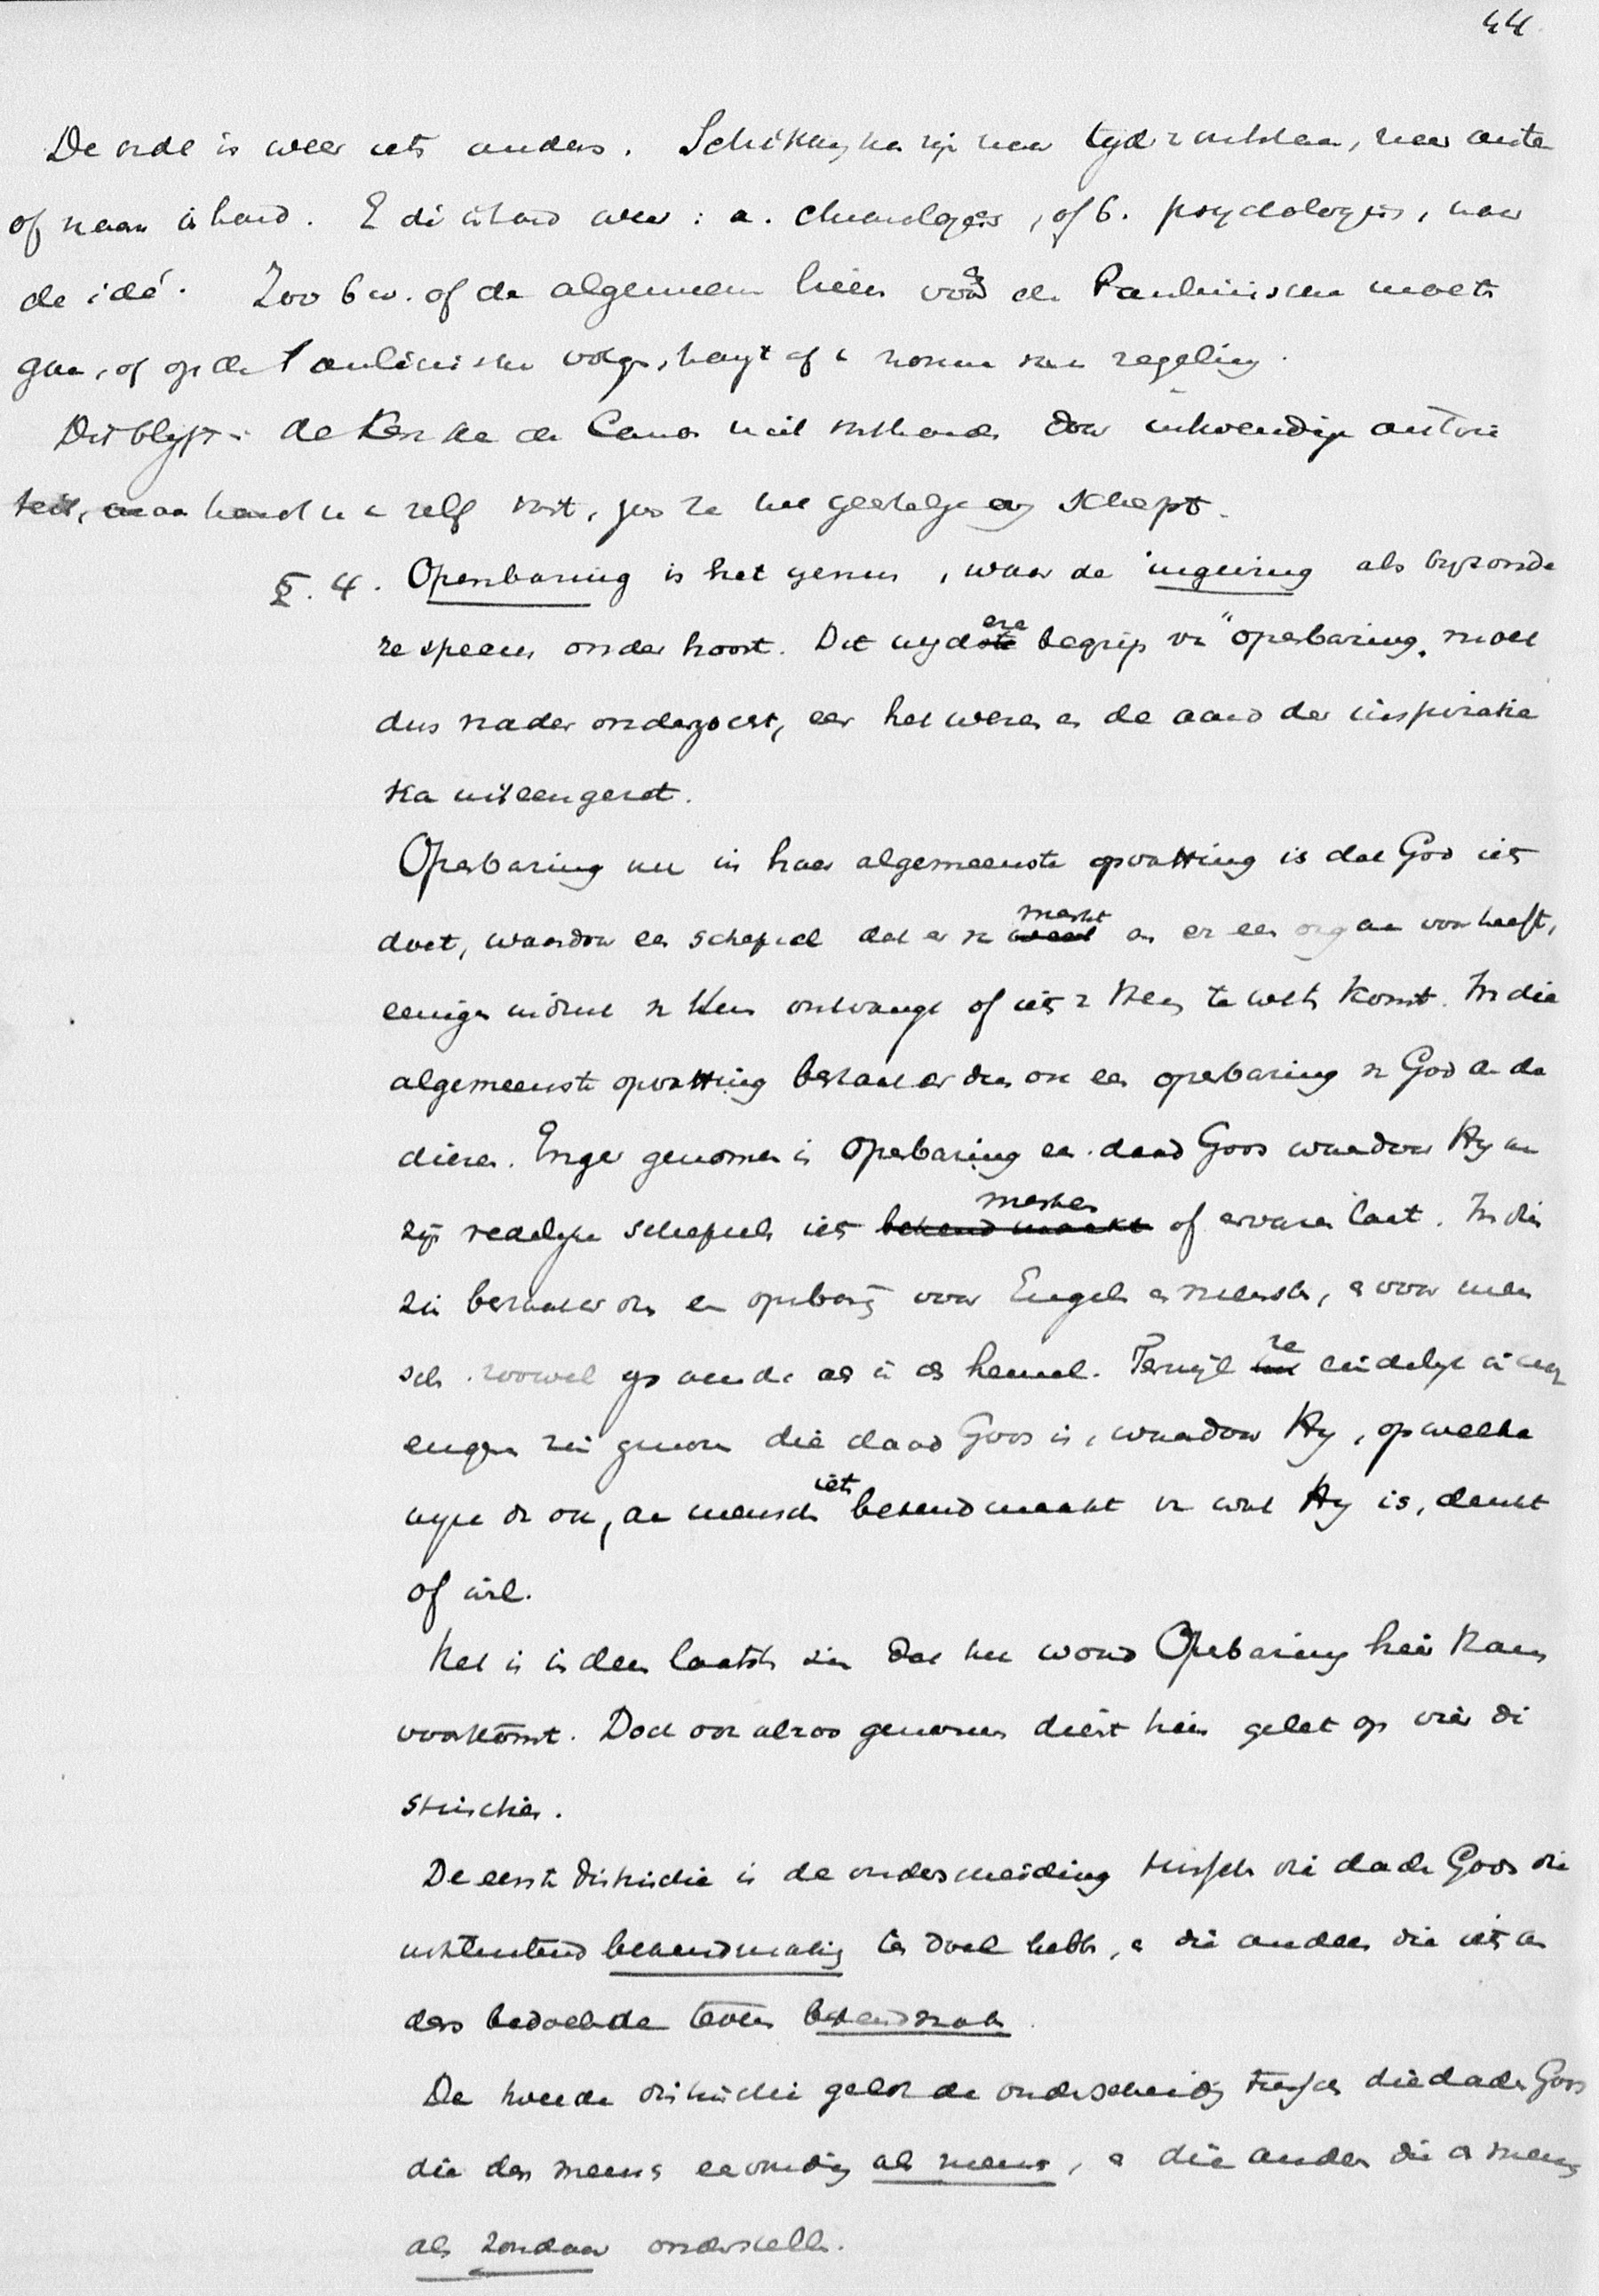 44.
De orde is weer iets anders. Schikking na zijn naar tijd, naar auteur
of naar inhoud. E di inhoud weer: a. chronologies, of b. psychologies, naar
de idé. Zoo bw. of de algemeen brieven voor de Paulinische moeten
gaan, of op de Paulinische volgen, hangt af norm van regeling.
Dit blyft: de Kerk de Canon niet door inwendige autori
teit, maar zelf vast, zoo ze hem geestelyk schept.
§. 4. Openbaring is het genus, waar de ingeving als byzonde
re species onder hoort. Dit wydere begrip vn "openbaring" moet
dus nader onderzocht, eer het wezen en de aard der inspiratie
kan uiteengezet.
Openbaring nu in haar algemeenste opvatting is dat God iets
doet, waardoor een schepsel dat er vn merkt en er een orgaan voor heeft,
eenigen indruk vn Hem ontvangt of iets v Hem te weten komt. In die
algemeenste opvatting bestaat er dus ook een openbaring vn God an de
dieren. Enger genomen is Openbaring een daad Gods waardoor Hy an
zijn redelyke schepsels iets merken of ervaren laat. In dien
zin bestaat er ook een openbaring voor Engelen en menschen, en voor men
schen zoowel op aarde als in de hemel. Terwijl ze eindelyk in nog
enger zin genomen die daad Gods is, waardoor Hy, op welke
wyze dn ook, an menschen iets bekend maakt vn wat Hy is, denkt
of wil.
Het is in den laatsten zin dat het woord Openbaring hier
voorkomt. Doch ook alzoo genomen dient hier gelet op vier di
stincties.
De eerste distinctie is de onderscheiding tusschen die daden Gods die
uitsluitend bekendmaking ten doel hebben, en die andere die iets an
ders bedoelende tevens bekendmaken.
De tweede distinctie geldt de onderscheiding tusschen die daden Gods
die den mens eenvoudig als mens, en die andere die den mens
als zondaar onderstellen.